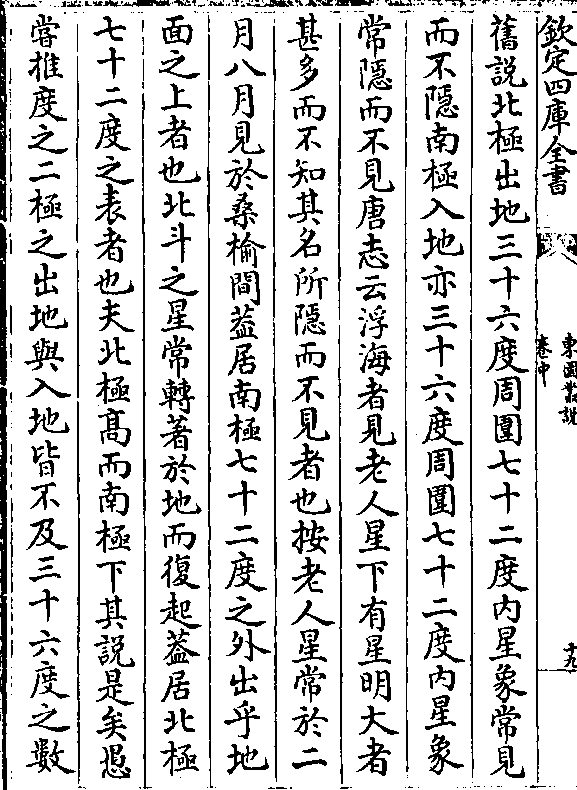 欽定四庫全書
東園叢說
卷中
十九
舊說北極出地三十六度周圍七十二度内星象常見
而不隱南極入地亦三十六度周圍七十二度内星象
常隱而不見唐志云浮海者見老人星下有星明大者
甚多而不知其名所隱而不見者也按老人星常於二
月八月見於桑榆間葢居南極七十二度之外出乎地
面之上者也北斗之星常轉著於地而復起葢居北極
七十二度之表者也夫北極髙而南極下其說是矣愚
嘗推度之二極之出地與入地皆不及三十六度之數